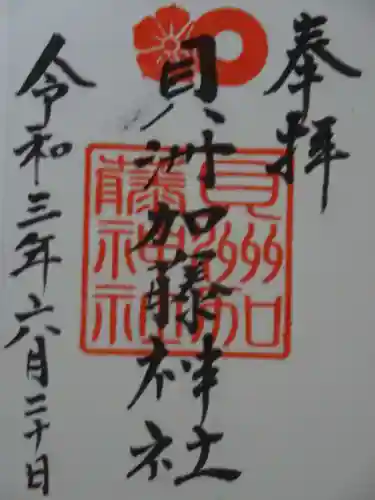 奉拝
貝洲加藤神社
貝洲加
藤神社
令和三年六月二十日